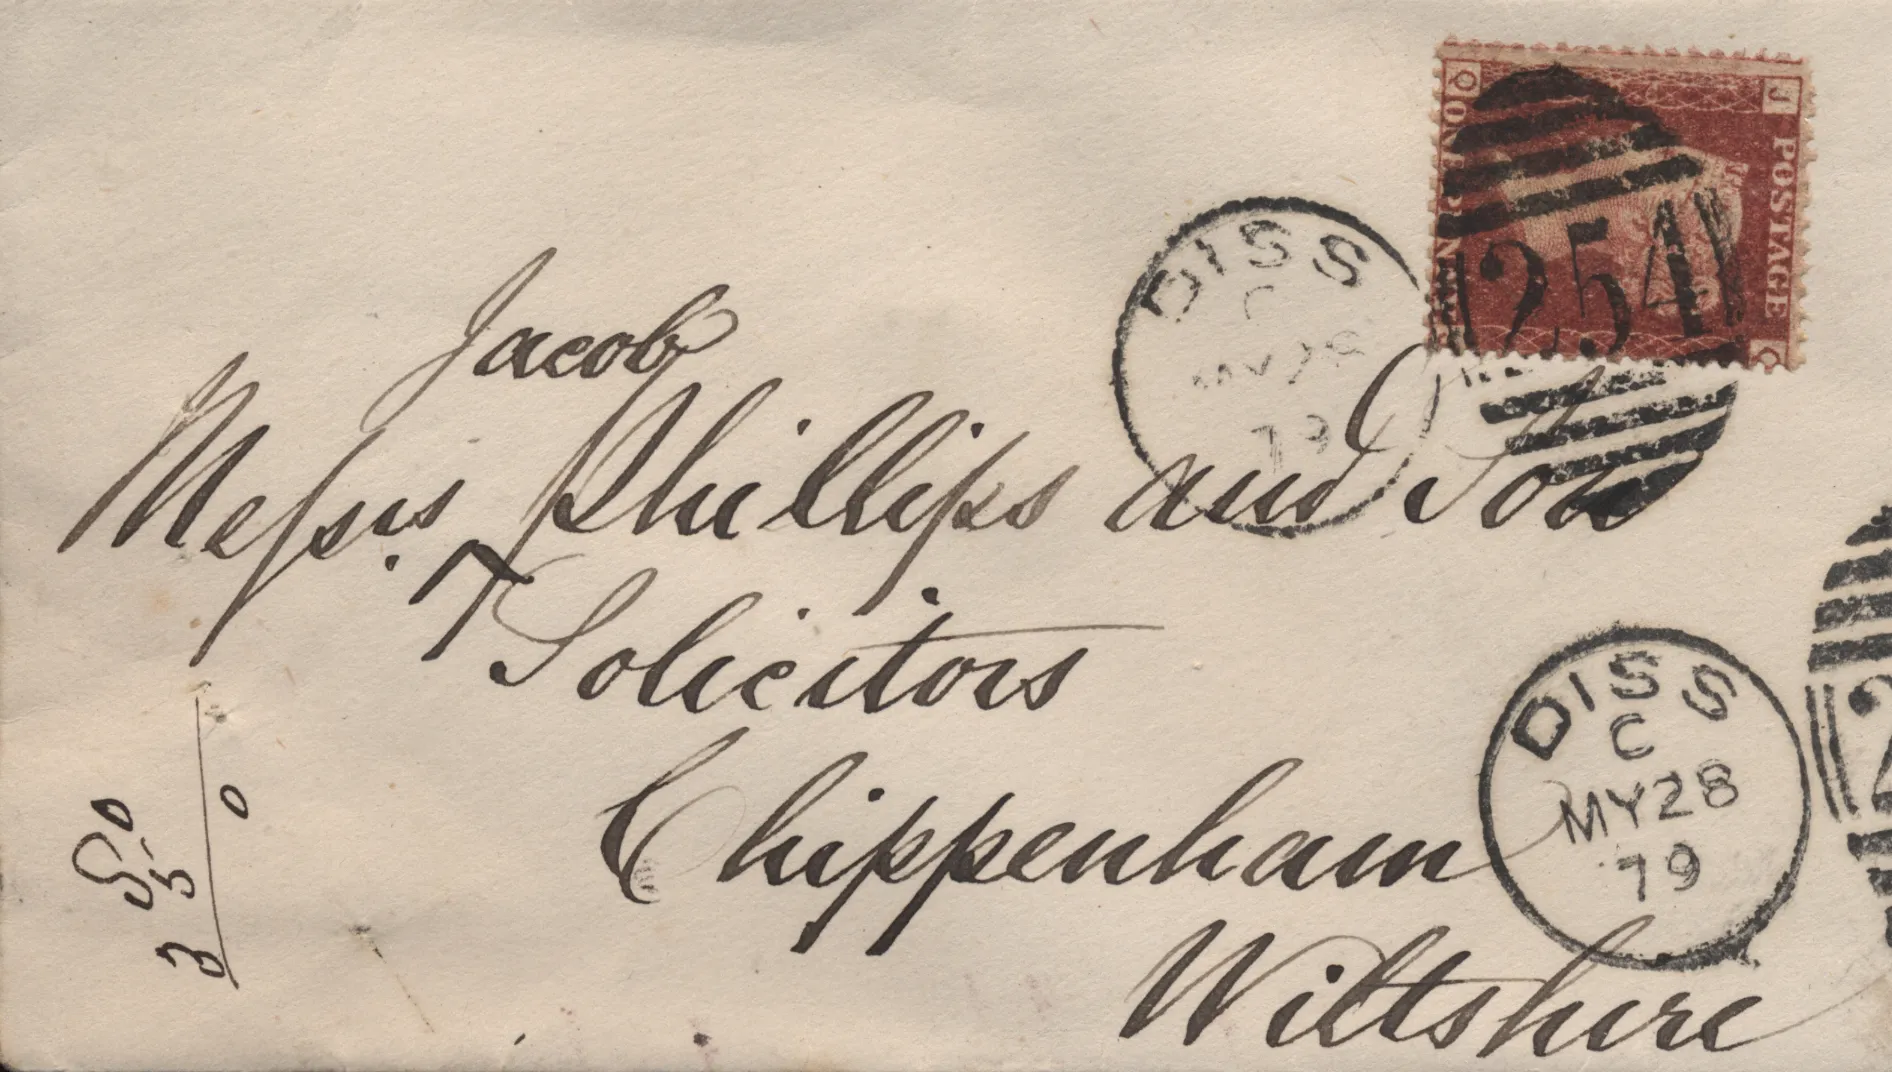 Q J
ONE PENNY
POSTAGE
Q
254
DISS
C
MY 28
79
Jacob
Messrs. Phillips and Son
Solicitors
Chippenham
Wiltshire
DISS
C
MY 28
79
2